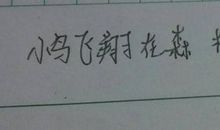 小鸟飞翔在森